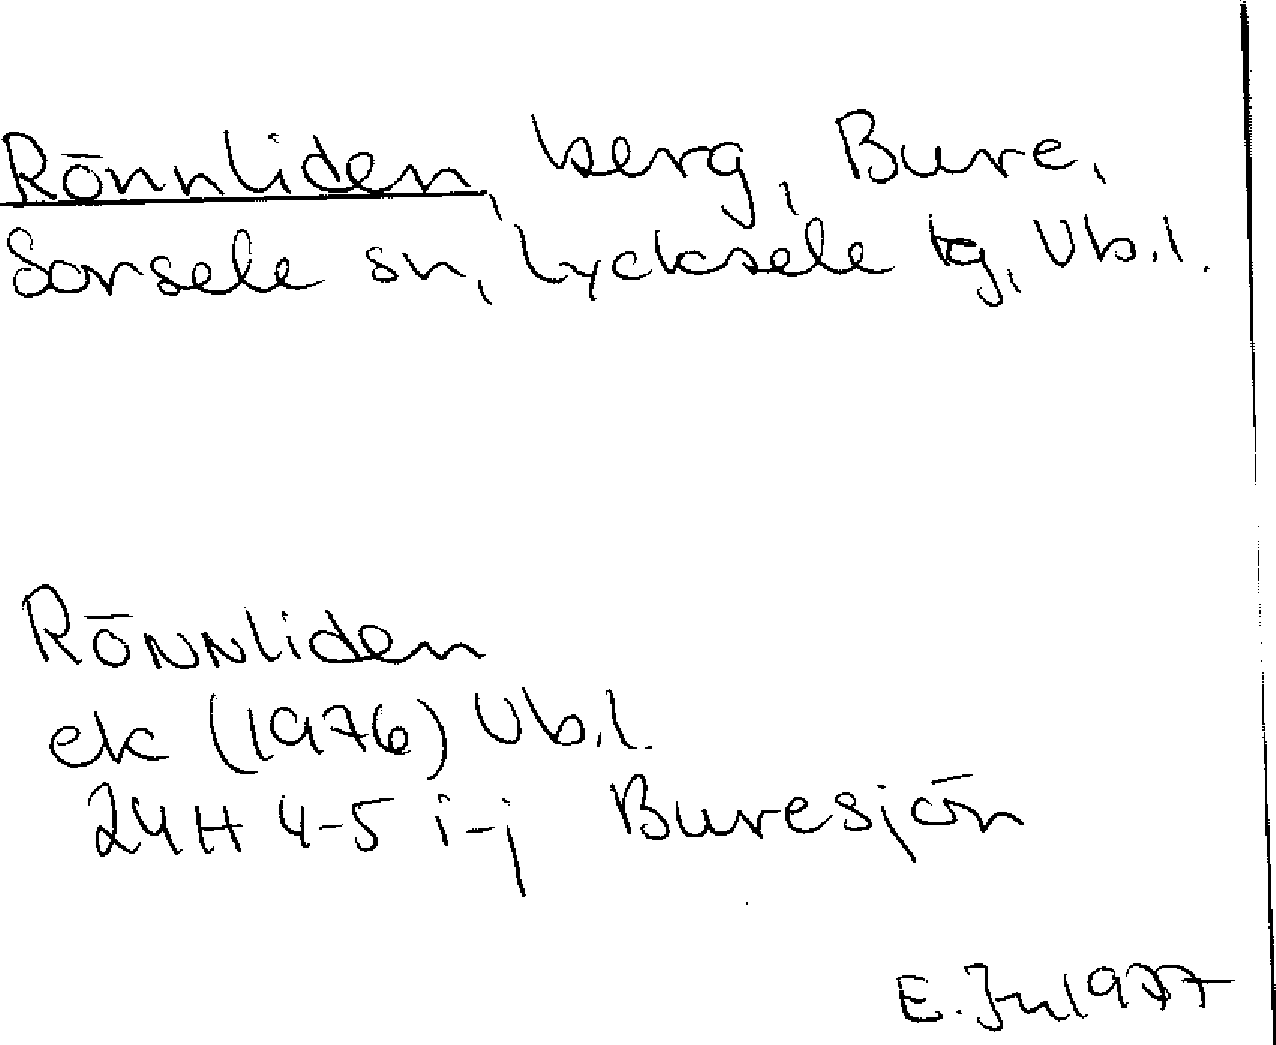 Rönnliden, berg, Bure,
Sorsele sn, Lycksele tg, Vb.l.
Rönnliden
ek (1976) Vb.l.
24H 4-5 i-j Buresjön
E. Ju 1977